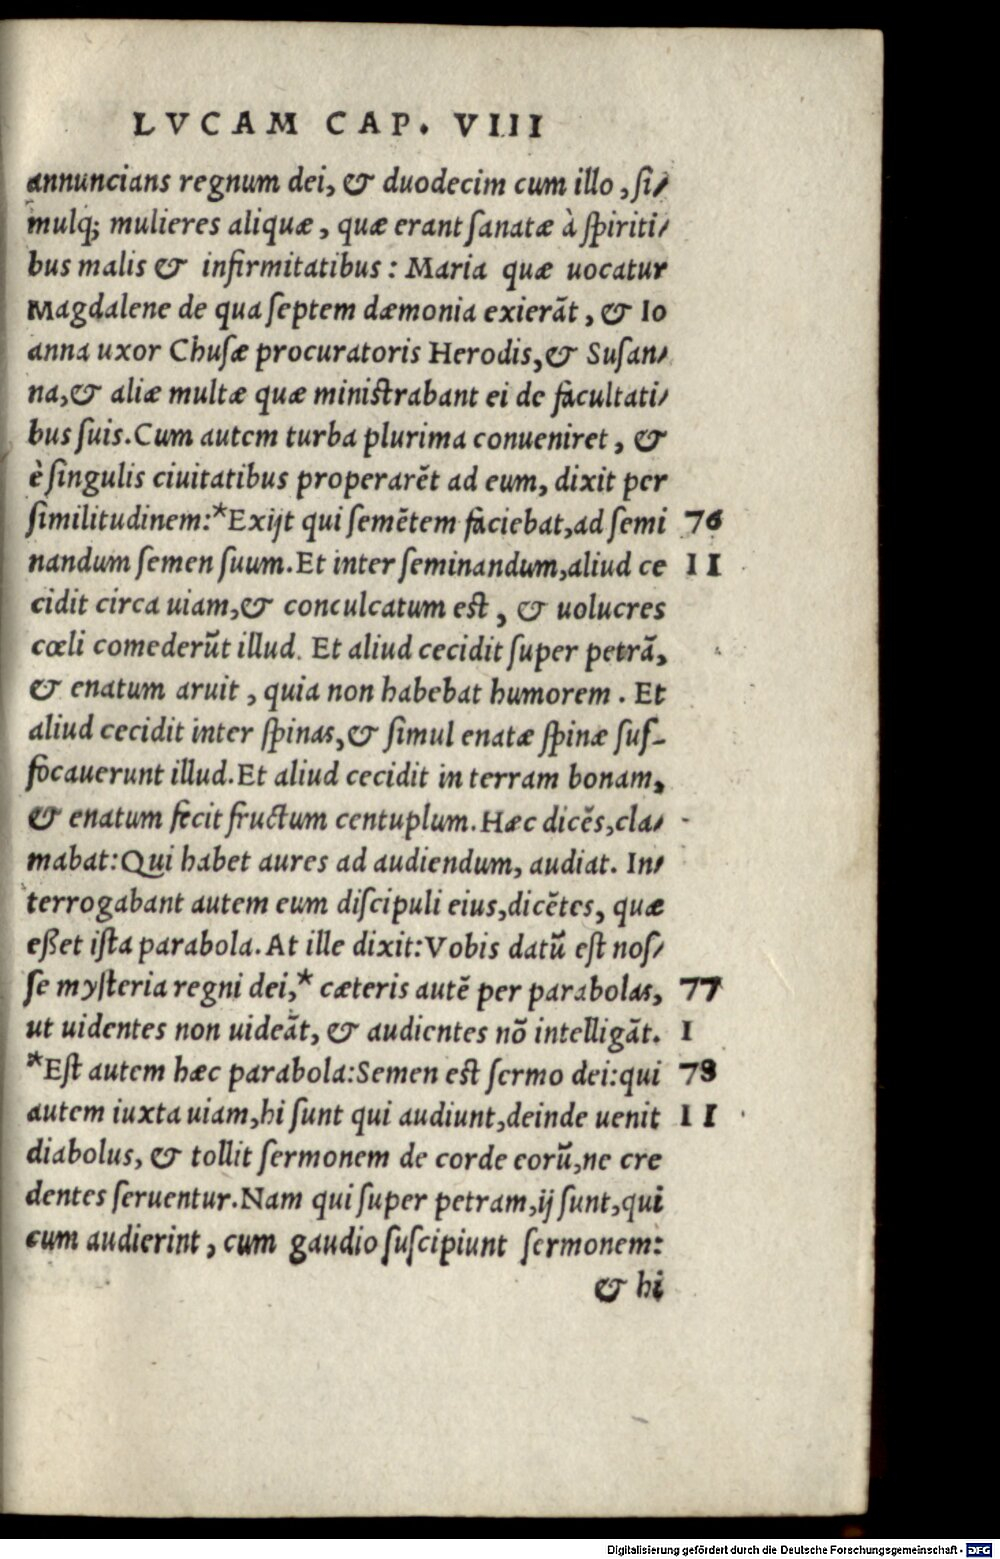 LVCAM CAP. VIII
annuncians regnum dei, & duodecim cum illo, ſi⸗
mulq; mulieres aliquæ, quæ erant ſanatæ à ſpiriti⸗
bus malis & infirmitatibus: Maria quæ uocatur
Magdalene de qua ſeptem dæmonia exierãt, & Io
anna uxor Chuſæ procuratoris Herodis, & Suſan⸗
na, & aliæ multæ quæ miniſtrabant ei de facultati⸗
bus ſuis. Cum autem turba plurima conueniret, &
è ſingulis ciuitatibus properarẽt ad eum, dixit per
ſimilitudinem:*Exijt qui ſemẽtem faciebat, ad ſemi 76
nandum ſemen ſuum. Et inter ſeminandum, aliud ce II
cidit circa uiam, & conculcatum eſt, & uolucres
cœli comederũt illud. Et aliud cecidit ſuper petrã,
& enatum aruit, quia non habebat humorem. Et
aliud cecidit inter ſpinas, & ſimul enatæ ſpinæ ſuf-
focauerunt illud. Et aliud cecidit in terram bonam,
& enatum fecit fructum centuplum. Hæc dicẽs, cla⸗
mabat: Qui habet aures ad audiendum, audiat. In⸗
terrogabant autem eum diſcipuli eius, dicẽtes, quæ
eßet iſta parabola. At ille dixit: Vobis datũ eſt noſ⸗
ſe myſteria regni dei,* cæteris autẽ per parabolas, 77
ut uidentes non uideãt, & audientes nõ intelligãt. I
*Eſt autem hæc parabola: Semen eſt ſermo dei: qui 78
autem iuxta uiam, hi ſunt qui audiunt, deinde uenit II
diabolus, & tollit ſermonem de corde eorũ, ne cre
dentes ſeruentur. Nam qui ſuper petram, ij ſunt, qui
cum audierint, cum gaudio ſuſcipiunt ſermonem:
& hi
Digitalisierung gefördert durch die Deutsche Forschungsgemeinschaft - DFG